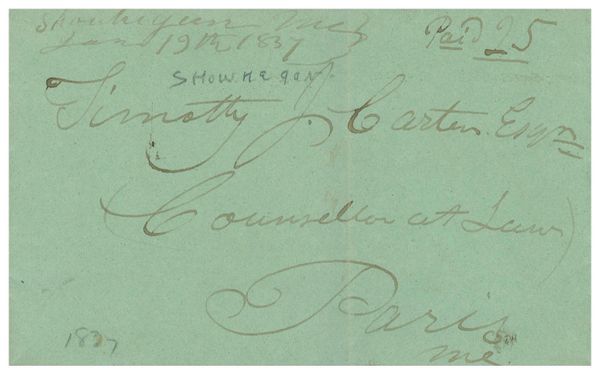 Skouhegan Me
Jan 19th 1837
Paid 25
SHOWHEGAN.
Timothy J. Carter Esqr
(Counsellor at Law)
Paris
Me.
1837